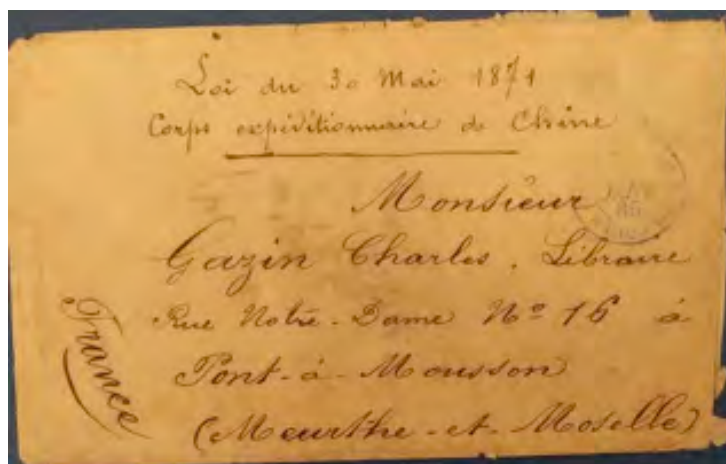 Loi du 30 Mai 1871
Corps expéditionnaire de Chine
Monsieur
Gazin Charles, Libraire
Rue Notre-Dame Nº 16 à
Pont-à-Mousson
(Meurthe-et-Moselle)
France